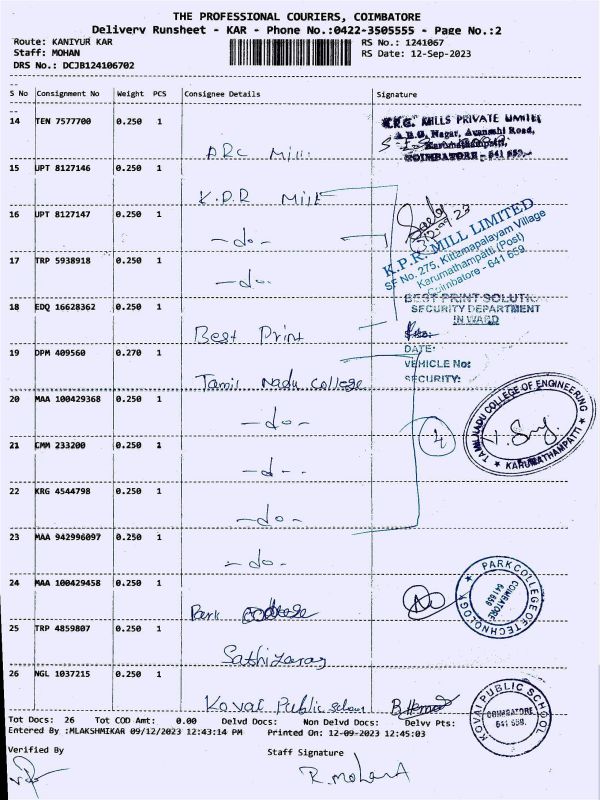 THE PROFESSIONAL COURIERS, COIMBATORE
Delivery Runsheet - KAR - Phone No.:0422-3505555 - Page No.:2
Route: KANIYUR KAR
RS No.: 1241067
Staff: MOHAN
RS Date: 12-Sep-2023
DRS No.: DCJB124106702
S No Consignment No Weight PCS Consignee Details Signature
14 TEN 7577700 0.250 1
K.R.G. MILLS PRIVATE LIMITED
A.B.G. Nagar, Avanashi Road,
Karumathampatti,
COIMBATORE - 641 659.
ARC Mill.
15 UPT 8127146 0.250 1
K.P.R Mill
16 UPT 8127147 0.250 1
-do-
K.P.R. MILL LIMITED
SF No. 275, Kittamapalayam Village
Karumathampatti (Post)
Coinbatore - 641 659.
17 TRP 5938918 0.250 1
-do-
18 EDQ 16628362 0.250 1
BEST PRINT SOLUTIO
SECURITY DEPARTMENT
IN WARD
Best Print
DATE:
19 DPM 409560 0.270 1
VEHICLE No:
SECURITY:
Tamil Nadu College
20 MAA 100429368 0.250 1
-do-
TAMILNADU COLLEGE OF ENGINEERING
KARUMATHAMPATTI
4
21 CMM 233200 0.250 1
-d-.
22 KRG 4544798 0.250 1
-do-
23 MAA 942996097 0.250 1
-do-
24 MAA 100429458 0.250 1
Park College
PARK COLLEGE OF TECHNOLOGY
COIMBATORE
641 659
25 TRP 4859807 0.250 1
26 NGL 1037215 0.250 1
Kovai Public School
KOVAI PUBLIC SCHOOL
COIMBATORE
641 659.
Tot Docs: 26 Tot COD Amt: 0.00 Delvd Docs: Non Delvd Docs: Delvy Pts:
Entered By :MLAKSHMIKAR 09/12/2023 12:43:14 PM Printed On: 12-09-2023 12:45:03
Verified By
Staff Signature
R.Mohan